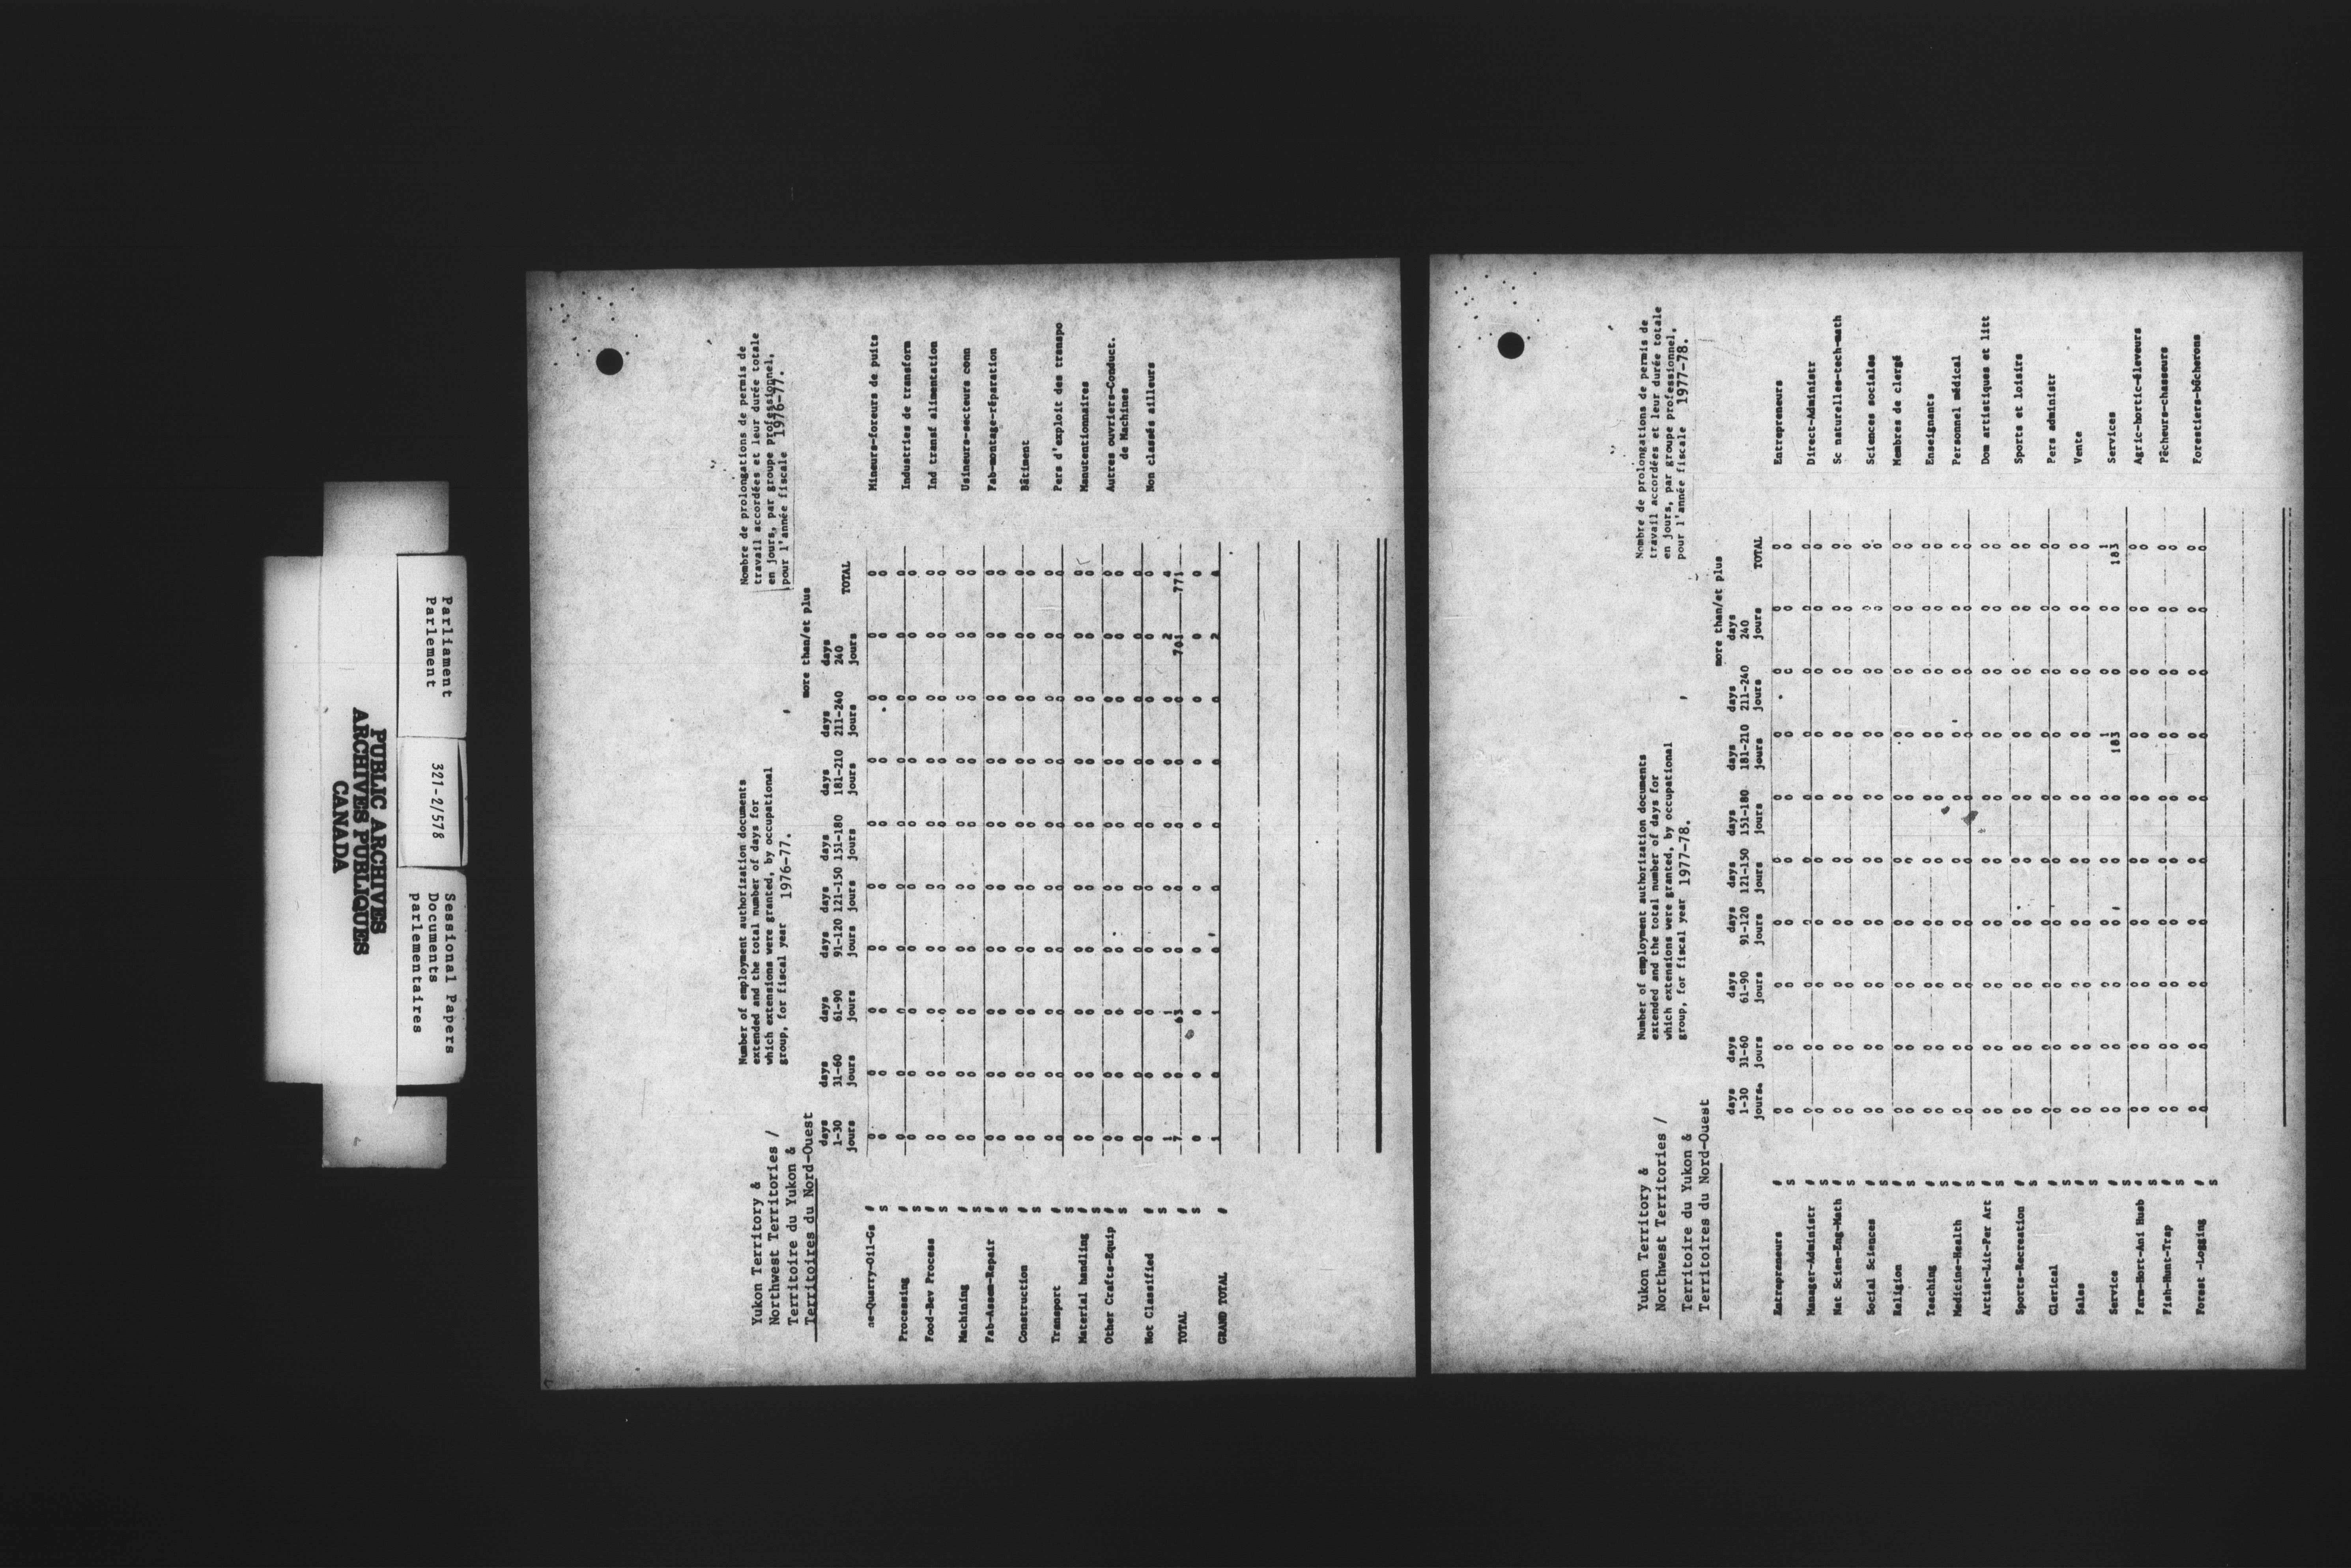 PUBLIC ARCHIVES
ARCHIVES PUBLIQUES
CANADA
Parliament
Parlement
321-2/578
Sessional Papers
Documents
parlementaires
Yukon Territory &
Northwest Territories /
Territoire du Yukon &
Territoires du Nord-Ouest
Number of employment authorization documents
extended and the total number of days for
which extensions were granted, by occupational
group, for fiscal year 1976-77.
Nombre de prolongations de permis de
travail accordées et leur durée totale
en jours, par groupe professionnel,
pour l'année fiscale 1976-77.
more than/et plus
days days days days days days days days days
1-30 31-60 61-90 91-120 121-150 151-180 181-210 211-240 240 TOTAL
jours jours jours jours jours jours jours jours jours
ne-Quarry-Oil-Gs # 0 0 0 0 0 0 0 0 0 0 Mineurs-foreurs de puits
S 0 0 0 0 0 0 0 0 0 0
Processing # 0 0 0 0 0 0 0 0 0 0 Industries de transform
S 0 0 0 0 0 0 0 0 0 0
Food-Bev Process # 0 0 0 0 0 0 0 0 0 0 Ind transf alimentation
S 0 0 0 0 0 0 0 0 0 0
Machining # 0 0 0 0 0 0 0 0 0 0 Usineurs-secteurs conn
S 0 0 0 0 0 0 0 0 0 0
Fab-Assem-Repair # 0 0 0 0 0 0 0 0 0 0 Fab-montage-réparation
S 0 0 0 0 0 0 0 0 0 0
Construction # 0 0 0 0 0 0 0 0 0 0 Bâtiment
S 0 0 0 0 0 0 0 0 0 0
Transport # 0 0 0 0 0 0 0 0 0 0 Pers d'exploit des transpo
S 0 0 0 0 0 0 0 0 0 0
Material handling # 0 0 0 0 0 0 0 0 0 0 Manutentionnaires
S 0 0 0 0 0 0 0 0 0 0
Other Crafts-Equip # 0 0 0 0 0 0 0 0 0 0 Autres ouvriers-Conduct.
S 0 0 0 0 0 0 0 0 0 0 de Machines
Not Classified # 0 0 0 0 0 0 0 0 0 0 Non classés ailleurs
S 0 0 0 0 0 0 0 0 0 0
TOTAL # 1 0 1 0 0 0 0 0 2 4
S 7 0 63 0 0 0 0 0 701 771
0 0 0 0 0 0 0 0 0 0
GRAND TOTAL # 1 0 1 0 0 0 0 0 2 4
Yukon Territory &
Northwest Territories /
Territoire du Yukon &
Territoires du Nord-Ouest
Number of employment authorization documents
extended and the total number of days for
which extensions were granted, by occupational
group, for fiscal year 1977-78.
Nombre de prolongations de permis de
travail accordées et leur durée totale
en jours, par groupe professionnel,
pour l'année fiscale 1977-78.
more than/et plus
days days days days days days days days days
1-30 31-60 61-90 91-120 121-150 151-180 181-210 211-240 240 TOTAL
jours. jours jours jours jours jours jours jours jours
Entrepreneurs # 0 0 0 0 0 0 0 0 0 0 Entrepreneurs
S 0 0 0 0 0 0 0 0 0 0
Manager-Administr # 0 0 0 0 0 0 0 0 0 0 Direct-Administr
S 0 0 0 0 0 0 0 0 0 0
Nat Scien-Eng-Math # 0 0 0 0 0 0 0 0 0 0 Sc naturelles-tech-math
S 0 0 0 0 0 0 0 0 0 0
Social Sciences # 0 0 0 0 0 0 0 0 0 0 Sciences sociales
S 0 0 0 0 0 0 0 0 0 0
Religion # 0 0 0 0 0 0 0 0 0 0 Membres de clergé
S 0 0 0 0 0 0 0 0 0 0
Teaching # 0 0 0 0 0 0 0 0 0 0 Enseignants
S 0 0 0 0 0 0 0 0 0 0
Medicine-Health # 0 0 0 0 0 0 0 0 0 0 Personnel médical
S 0 0 0 0 0 0 0 0 0 0
Artist-Lit-Per Art # 0 0 0 0 0 0 0 0 0 0 Dom artistiques et litt
S 0 0 0 0 0 0 0 0 0 0
Sports-Recreation # 0 0 0 0 0 0 0 0 0 0 Sports et loisirs
S 0 0 0 0 0 0 0 0 0 0
Clerical # 0 0 0 0 0 0 0 0 0 0 Pers administr
S 0 0 0 0 0 0 0 0 0 0
Sales # 0 0 0 0 0 0 0 0 0 0 Vente
S 0 0 0 0 0 0 0 0 0 0
Service # 0 0 0 0 0 0 1 0 0 1 Services
S 0 0 0 0 0 0 183 0 0 183
Farm-Hort-Ani Husb # 0 0 0 0 0 0 0 0 0 0 Agric-hortic-éleveurs
S 0 0 0 0 0 0 0 0 0 0
Fish-Hunt-Trap # 0 0 0 0 0 0 0 0 0 0 Pêcheurs-chasseurs
S 0 0 0 0 0 0 0 0 0 0
Forest -Logging # 0 0 0 0 0 0 0 0 0 0 Forestiers-bûcherons
S 0 0 0 0 0 0 0 0 0 0